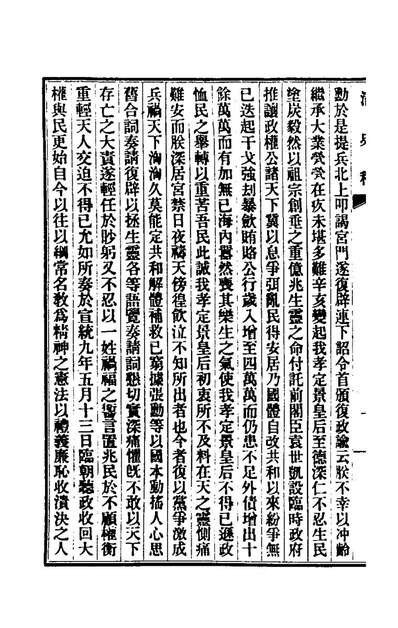 勳於是提兵北上叩謁宮門遂復辟連下詔令首頒復政諭云朕不幸以冲齡
繼承大業煢煢在疚未堪多難辛亥變起我孝定景皇后至德深仁不忍生民
塗炭毅然以祖宗創垂之重億兆生靈之命付託前閣臣袁世凱設臨時政府
推議政權公諸天下冀以息爭弭亂民得安居乃國體自改共和以來紛爭無
已迭起干戈強刦暴歛賄賂公行歲入增至四萬萬而仍患不足外債增出十
餘萬萬而有加無已海內囂然喪其樂生之氣使我孝定景皇后不得已遜政
恤民之舉轉以重苦吾民此誠我孝定景皇后初衷所不及料在天之靈惻痛
難安而朕深居宮禁日夜禱天徬徨飲泣不知所出者也今者復以黨爭激成
兵禍天下洶洶久莫能定共和解體補救已窮據張勳等以國本動搖人心思
舊合詞奏請復辟以拯生靈各等語覽奏請詞懇切實深痛懼旣不敢以天下
存亡之大責遂輕任於眇躬又不忍以一姓禍福之讏言置兆民於不顧權衡
重輕天人交迫不得已允如所奏於宣統九年五月十三日臨朝聽政收回大
權與民更始自今以往以綱常名敎爲精神之憲法以禮義廉恥收潰決之人